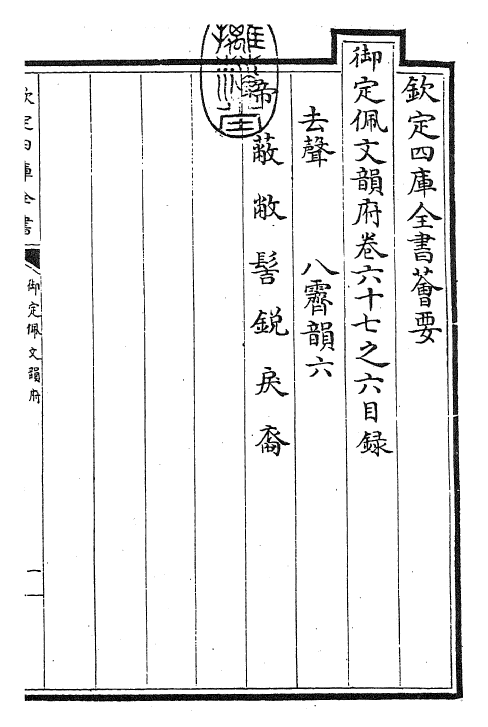 欽定四庫全書薈要
御定佩文韻府卷六十七之六目録
去聲　八霽韻六
帝蔽敝髻鋭戾裔
欽定四庫全書
御定佩文韻府
一